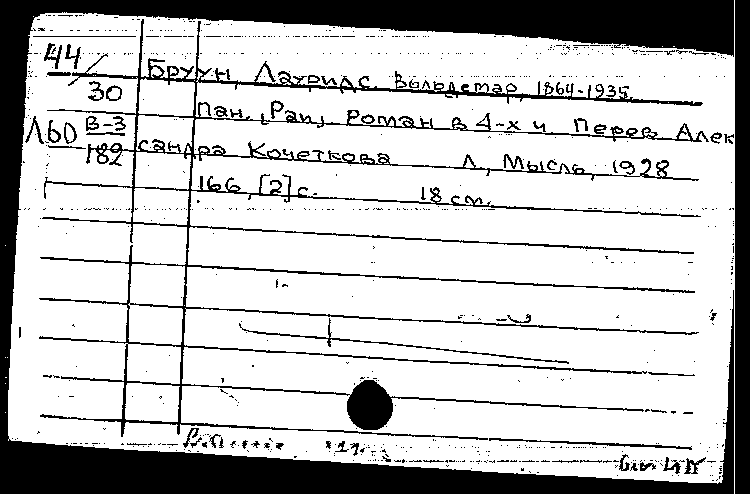 44/30 Бруун, Лауридс Вальдемар, 1864-1935.
Пан. [Pan] Роман в 4-х ч. Перев. Алек
Л60 В-3/182 сандра Кочеткова Л., Мысль, 1928
166, [2] с. 18 см.